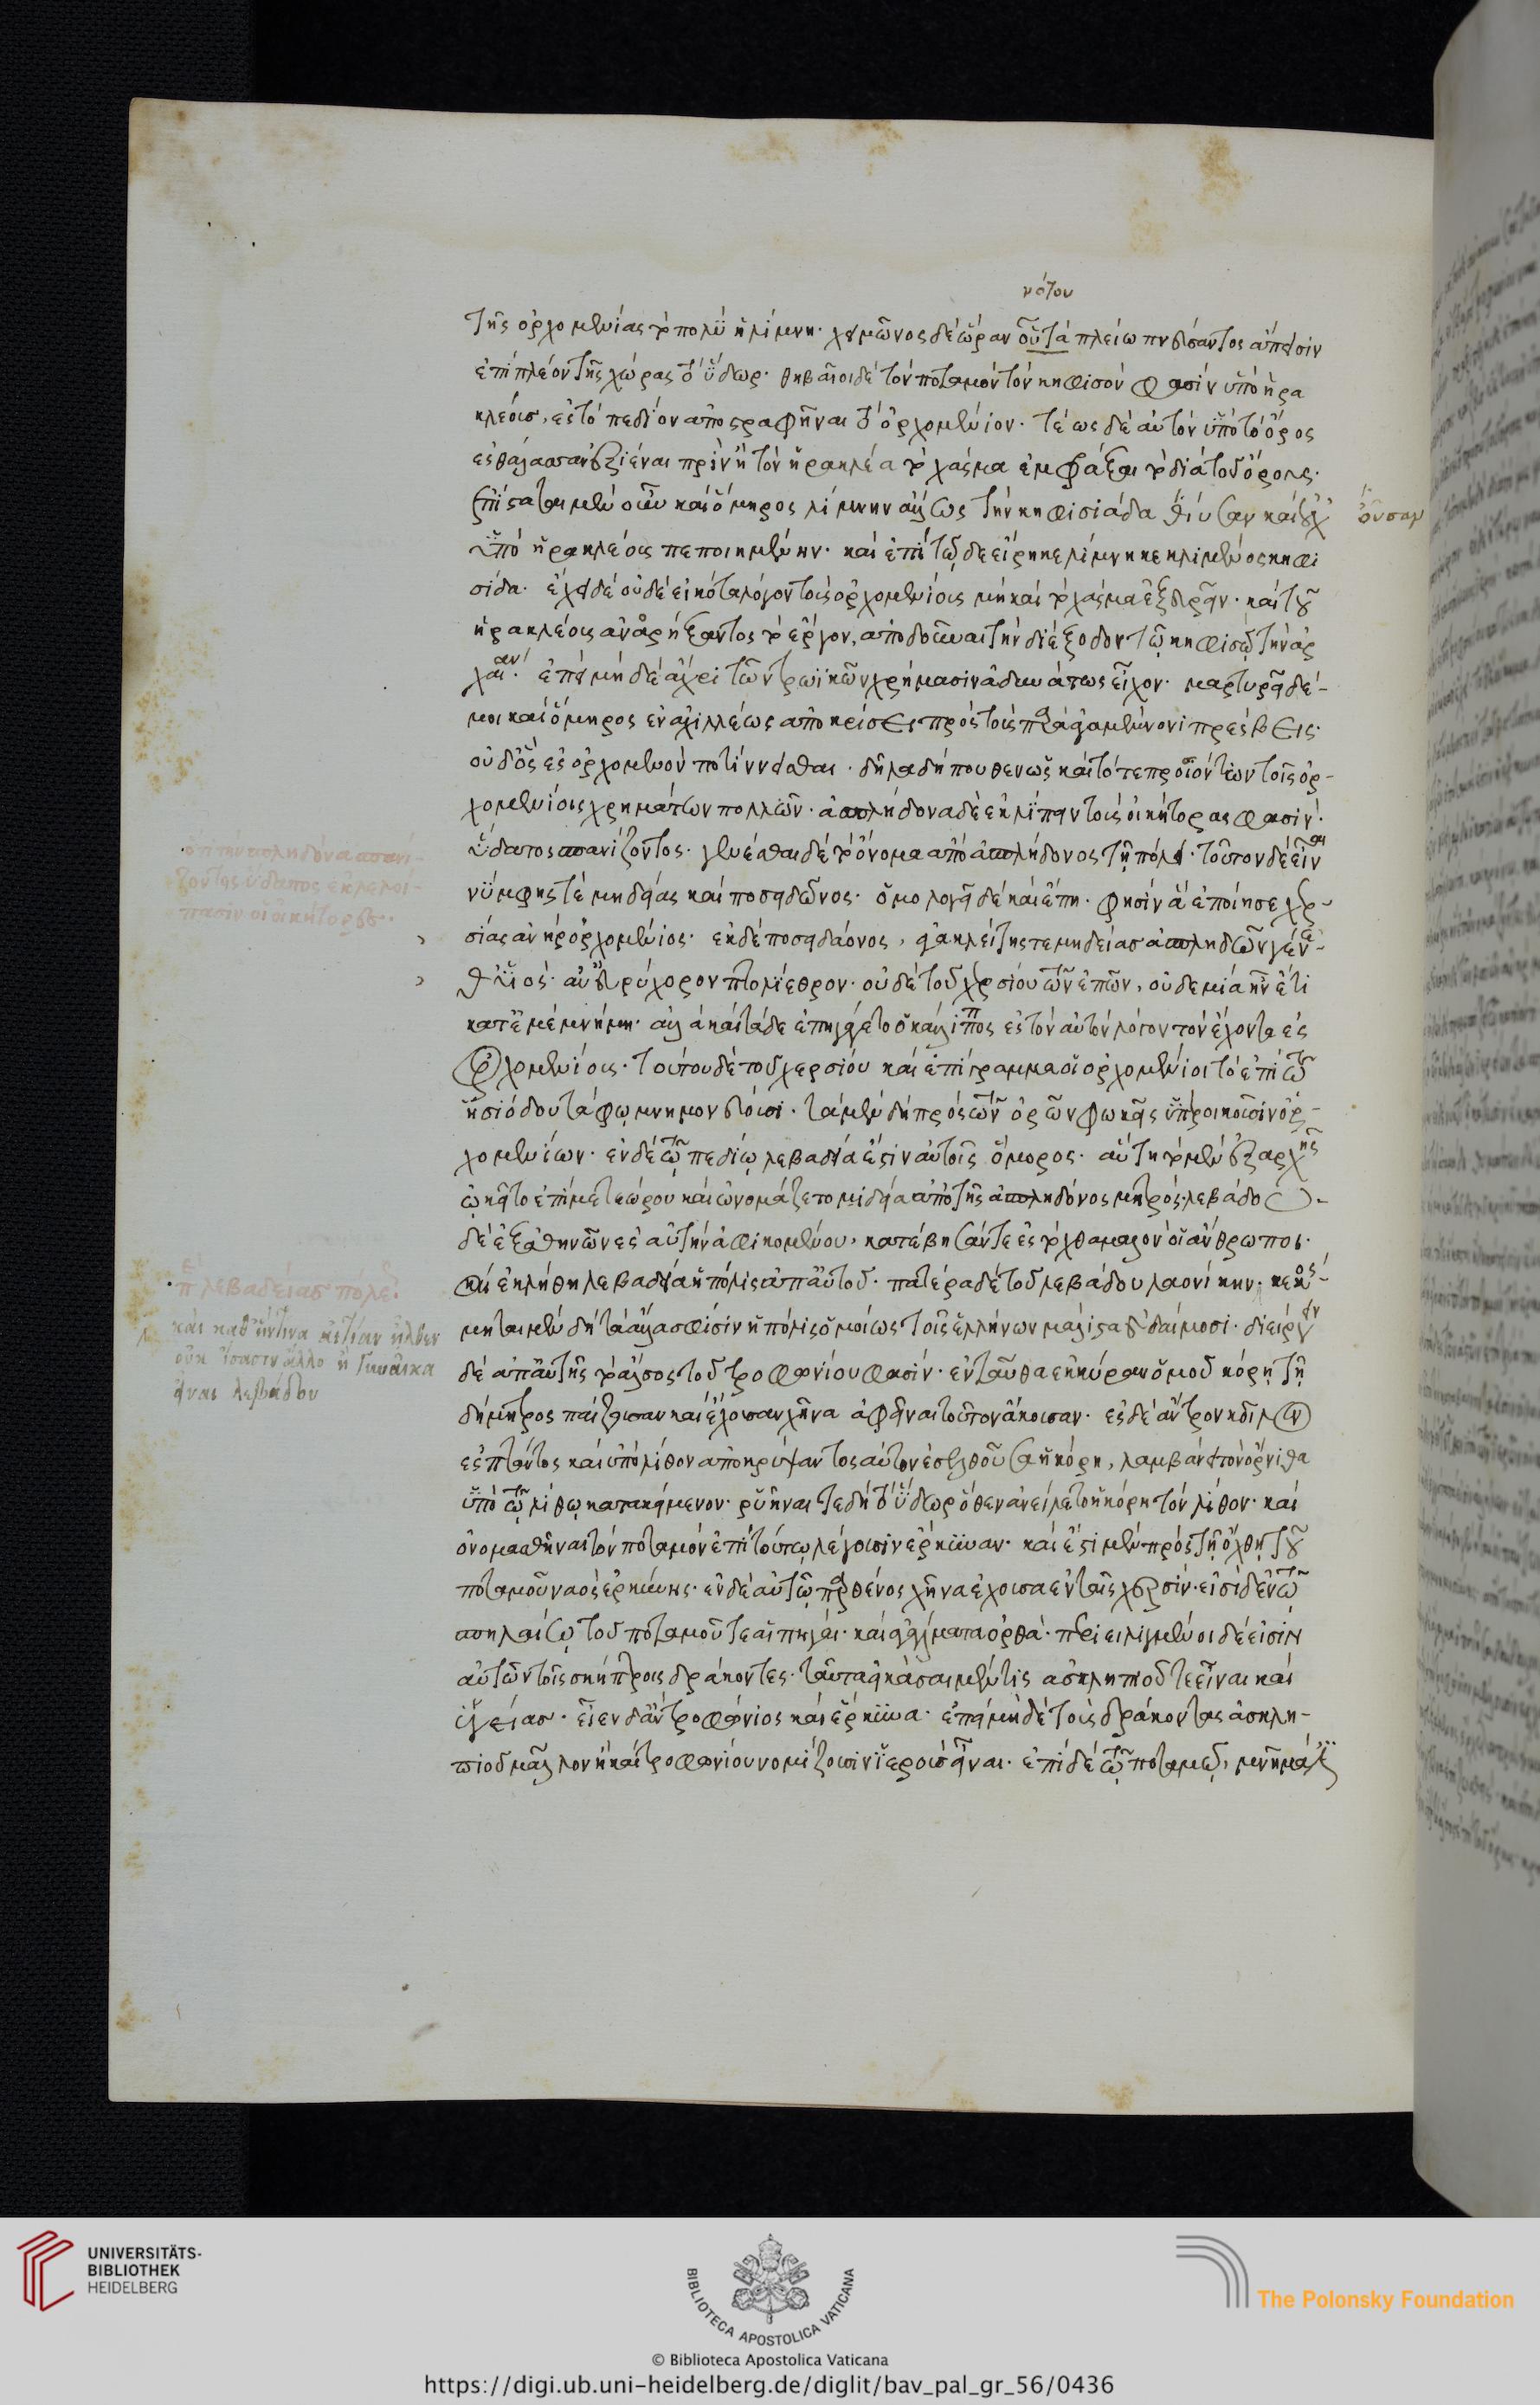 νότου
τῆς ὀρχομενίας τὸ πολὺ ἡ λίμνη· χειμῶνος δὲ ὥραν οὔτὰ πλείω πνεύσαντος ἄπεισιν
ἐπιπλέον τῆς χώρας τὸ ὕδωρ· θηβαῖοι δὲ τὸν ποταμὸν τὸν κηφισὸν φασὶν ὑπὸ ἡρα
κλέους, ἐς τὸ πεδίον ἀποστραφῆναι τὸ ὀρχομένιον· τέως δὲ αὐτὸν ὑπὸ τὸ ὄρος
ἐς θάλασσαν ἐξιέναι πρὶν ἢ τὸν ἡρακλέα τὸ χάσμα ἐμφράξαι τὸ διὰ τοῦ ὄρους·
ἐπίσταται μὲν οὖν καὶ ὅμηρος λίμνην ἄλλως τὴν κηφισιάδα καὶ οὐχ
οὖσαν
ὑπὸ ἡρακλέους πεποιημένην· καὶ ἐπὶ τῷδε εἴρηκε λίμνη κεκλιμένος κηφι
σίδα· ἔχει δὲ οὐδὲ εἰκότα λόγον τοὺς ὀρχομενίους μὴ καὶ τὸ χάσμα ἐξευρεῖν· καὶ τοῦ
ἡρακλέους ἀναρήξαντος τὸ ἔργον, ἀποδοῦναι τὴν διέξοδον τῷ κηφισῷ τὴν ἀρ
χαίαν· ἐπεὶ μὴ δὲ ἄχρι τῶν τρωϊκῶν χρήμασιν ἀδυνάτως εἶχον· μαρτυρεῖ δέ
μοι καὶ ὅμηρος ἐν ἀχιλλέως ἀποκρίσει πρὸς τοὺς παρὰ ἀγαμέμνονι πρέσβεις·
οὐδ' ὅσ' ἐς ὀρχομενὸν ποτινίσσεται· δῆλα δήπουθεν ὡς καὶ τότε προσιόντων τοῖς ὀρ-
χομενίοις χρημάτων πολλῶν· ἀσπληδόνα δὲ ἐκλιπεῖν τοὺς οἰκήτορας φασὶν·
ὕδατος σπανίζοντος· γενέσθαι δὲ τὸ ὄνομα ἀπὸ ἀσπλήδονος τῇ πόλει· τοῦτον δὲ εἶναι
νύμφης τὲ μηδείας καὶ ποσειδῶνος· ὁμολογεῖ δὲ καὶ ἔπη· φησὶν ἃ ἐποίησε χερ-
σίας ἀνὴρ ὀρχομένιος· ἐκ δὲ ποσειδάονος, κἀκλείτης τε μηδείας ἀσπληδὼν γένε
θ' υἱός· ἀν' εὐρύχορον πτολίεθρον· οὐδὲ τοῦ χερσίου τῶν ἐπῶν, οὐδεμία ἦν ἔτι
κατ' ἐμὲ μνήμη· ἀλλὰ καὶ τάδε ἐπηγάγετο ὁ κάλλιππος ἐς τὸν αὐτὸν λόγον τὸν ἔχοντα ἐς
ὀρχομενίους· τούτου δὲ τοῦ χερσίου καὶ ἐπίγραμμα οἱ ὀρχομένιοι τὸ ἐπὶ τῷ
ἡσιόδου τάφῳ μνημονεύουσι· τὰ μὲν δὴ πρὸς τῶν ὀρῶν φωκεῖς ὑπεροικοῦσιν ὀρ-
χομενίων· ἐν δὲ τῷ πεδίῳ λεβάδειά ἐστιν αὐτοῖς ὅμορος· αὕτη τὸ μὲν ἐξαρχῆς
ᾠκεῖτο ἐπὶ μετεώρου καὶ ὠνομάζετο μίδεια ἀπὸ τῆς ἀσπληδόνος μητρὸς· λεβάδου
δὲ ἐξ ἀθηνῶν ἐς αὐτὴν ἀφικομένου, κατέβησάν τε ἐς τὸ χθαμαλὸν οἱ ἄνθρωποι·
καὶ ἐκλήθη λεβάδεια ἡ πόλις ἀπ' αὐτοῦ· πατέρα δὲ τοῦ λεβάδου
μηται μὲν δὴ τὰ ἄλλα σφίσιν ἡ πόλις ὁμοίως τοῖς ἑλλήνων μάλιστα εὐδαίμοσι· διείργειν
δὲ ἀπ' αὐτῆς τὸ ἄλσος τοῦ τροφωνίου φασὶν· ἐνταῦθα ἑρκύναν ὁμοῦ κόρῃ τῇ
δήμητρος παίζουσαν καὶ ἔχουσαν χῆνα ἀφεῖναι τοῦτον ἄκουσαν· ἐς δὲ ἄντρον κοῖλον
ἐσπτάντος καὶ ὑπὸ λίθον ἀποκρύψαντος αὐτὸν ἐσελθοῦσα ἡ κόρη, λαμβάνει τὸν ὄρνιθα
ὑπὸ τῷ λίθῳ κατακείμενον· ῥυῆναί τε δὴ τὸ ὕδωρ ὅθεν ἀνείλετο ἡ κόρη τὸν λίθον· καὶ
ὀνομασθῆναι τὸν ποταμὸν ἐπὶ τούτῳ λέγουσιν ἕρκυναν· καὶ ἔστι μὲν πρὸς τῇ ὄχθῃ τοῦ
ποταμοῦ ναὸς ἑρκύνης· ἐν δὲ αὐτῷ παρθένος χῆνα ἔχουσα ἐν ταῖς χερσίν· εἰσὶ δὲ ἐν τῷ
σπηλαίῳ τοῦ ποταμοῦ τε αἱ πηγαὶ· καὶ ἀγάλματα ὀρθά· περιειλιγμένοι δέ εἰσιν
αὐτῶν τοῖς σκήπτροις δράκοντες· ταῦτα εἰκάσαι μέν τις ἀσκληπιοῦ τε εἶναι καὶ
ὑγείας· εἶεν δ' ἂν τροφώνιος καὶ ἕρκυνα· ἐπεὶ μὴ δὲ τοὺς δράκοντας ἀσκλη-
πιοῦ μᾶλλον ἢ καὶ τροφωνίου νομίζουσιν ἱεροὺς εἶναι· ἐπὶ δὲ τῷ ποταμῷ, μνῆμά
ὅτι τὴν ἀσπληδόνα σπανί-
ζοντος ὕδατος ἐκλελοί-
πασιν οἱ οἰκήτορες·
λεβαδείας πόλε
καὶ καθ' ἥντινα αἰτίαν ἦλθεν
οὐκ ἴσασιν ἄλλο ἢ γυναῖκα
εἶναι λεβάδου
UNIVERSITÄTS-
BIBLIOTHEK
HEIDELBERG
BIBLIOTECA APOSTOLICA VATICANA
The Polonsky Foundation
© Biblioteca Apostolica Vaticana
https://digi.ub.uni-heidelberg.de/diglit/bav_pal_gr_56/0436